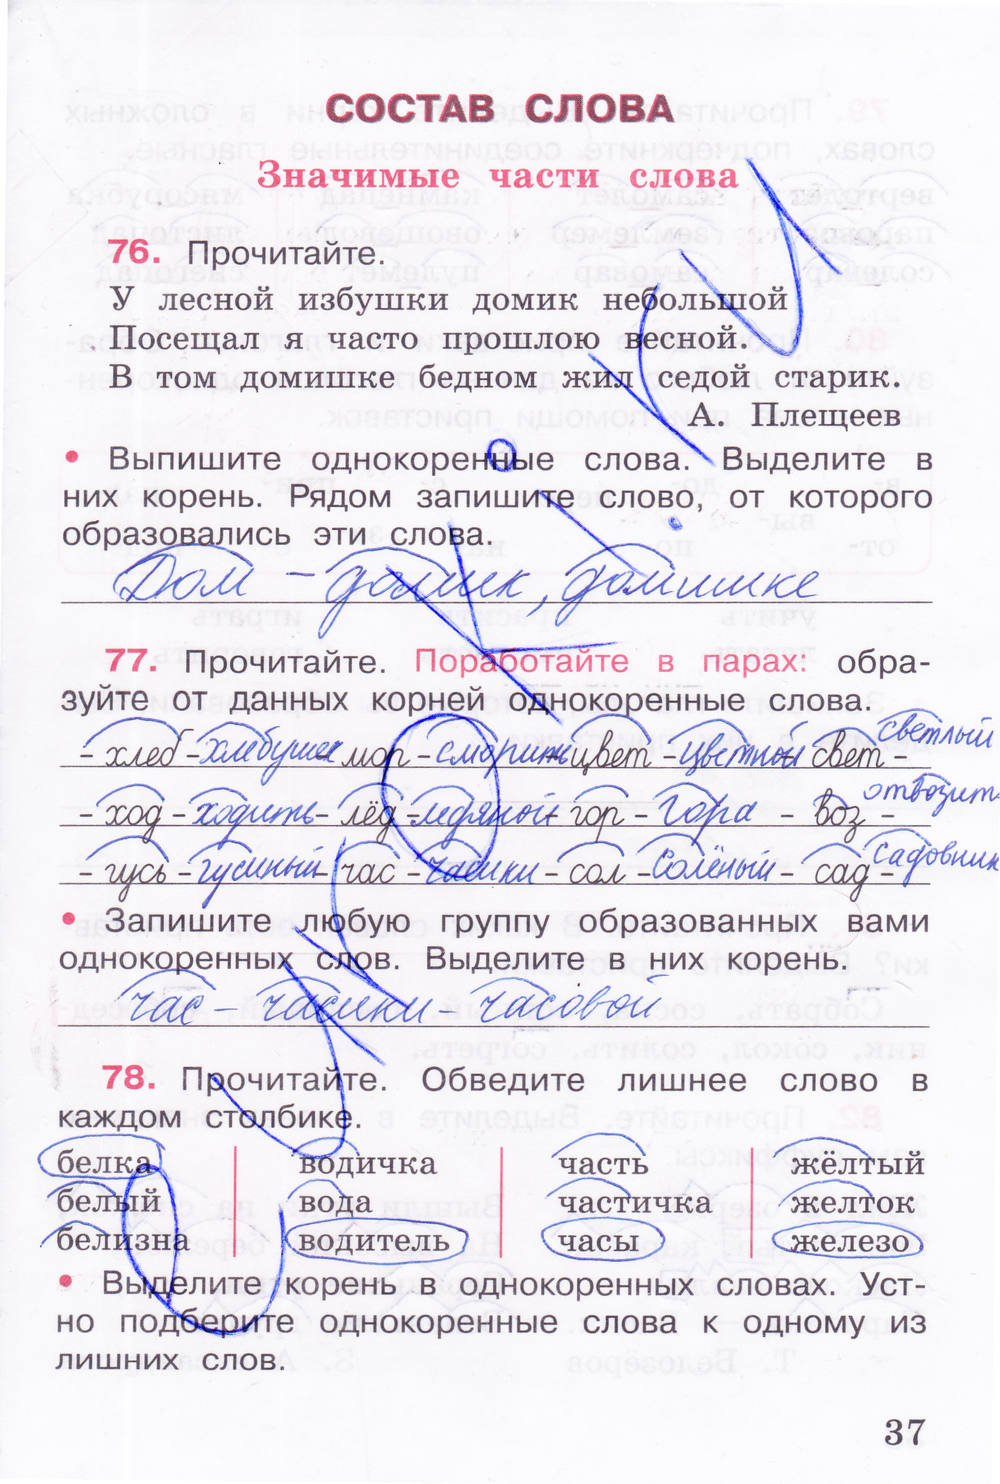 СОСТАВ СЛОВА
Значимые части слова
76. Прочитайте.
У лесной избушки домик небольшой
Посещал я часто прошлою весной.
В том домишке бедном жил седой старик.
А. Плещеев
• Выпишите однокоренные слова. Выделите в
них корень. Рядом запишите слово, от которого
образовались эти слова.
Дом – домик, домишке
77. Прочитайте. Поработайте в парах: обра-
зуйте от данных корней однокоренные слова.
- хлеб - хлебушек мор - сморить - цвет - цветной - свет - светлый
- ход - ходить - лёд - ледяной - гор - гора - воз - отвозит
- гусь - гусиный - час - часики - сол - солёный - сад - садовник
• Запишите любую группу образованных вами
однокоренных слов. Выделите в них корень.
час – часики – часовой
78. Прочитайте. Обведите лишнее слово в
каждом столбике.
белка водичка часть жёлтый
белый вода частичка желток
белизна водитель часы железо
• Выделите корень в однокоренных словах. Уст-
но подберите однокоренные слова к одному из
лишних слов.
37